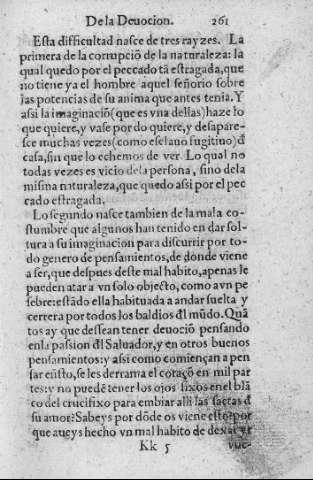 De la Deuocion. 261
Esta difficultad nasce de tres rayzes. La
primera de la corrupciõ de la naturaleza: la
qual quedo por el peccado tã estragada, que
no tiene ya el hombre aquel señorio sobre
las potencias de su anima que antes tenia. Y
assi la imaginaciõ (que es vna dellas) haze lo
que quiere, y vase por do quiere, y desapare-
sce muchas vezes (como esclauo fugitiuo) đ
casa, sin que lo echemos de ver. Lo qual no
todas vezes es vicio de la persona, sino de la
misma naturaleza, que quedo assi por el pec
cado estragada.
Lo segundo nasce tambien de la mala co-
stumbre que algunos han tenido en dar sol-
tura a su imaginacion para discurrir por to-
do genero de pensamientos, de donde viene
a ser, que despues deste mal habito, apenas le
pueden atar a vn solo objecto, como a vn pe
sebre: estãdo ella habituada a andar suelta y
cerrera por todos los baldios đl mũdo. Quã
tos ay que dessean tener deuociõ pensando
en la passion đl Saluador, y en otros buenos
pensamientos: y assi como comiençan a pen
sar eñsto, se les derrama el coraçõ en mil par
tes: y no puedẽ tener los ojos fixos en el blã
co del crucifixo para embiar alli las saetas đ
su amor? Sabeys por dõde os viene esto? por
que aueys hecho vn mal habito de dexar yr
Kk 5 vue-